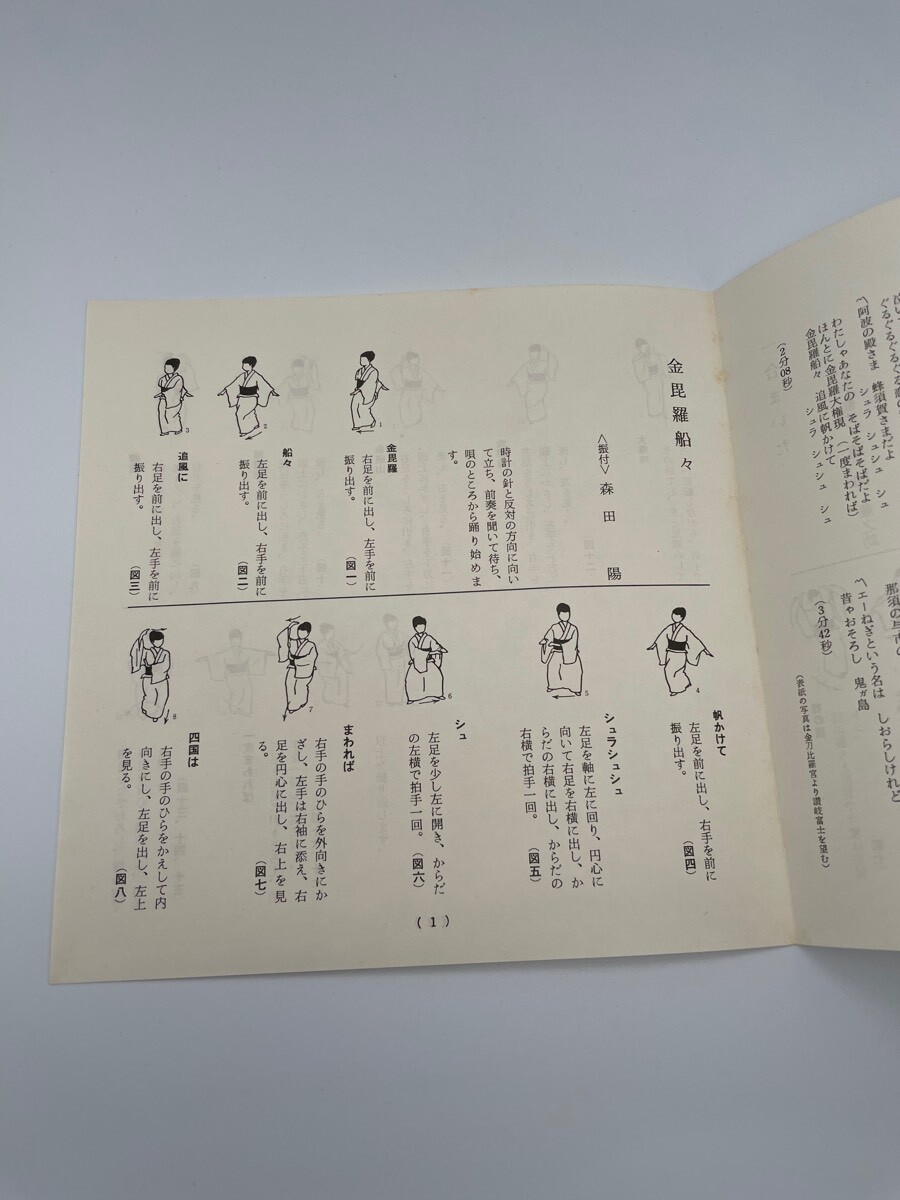 ぐるぐるぐるぐる
〽阿波の殿さま 蜂須賀さまだよ
シュラ シュシュ シュ
わたしゃあなたの そばそばそばだよ
ほんとに金毘羅大権現 (一度まわれば)
金毘羅船々 追風に帆かけて
シュラ シュシュ シュ
(2分08秒)
〽エーねぎという名は しおらしけれど
昔ゃおそろし 鬼ガ島
(3分42秒)
(表紙の写真は金刀比羅宮より讃岐富士を望む)
金毘羅船々
〈振付〉森田 陽
時計の針と反対の方向に向い
て立ち、前奏を聞いて待ち、
唄のところから踊り始めま
す。
金毘羅
右足を前に出し、左手を前に
振り出す。 (図一)
1
船々
左足を前に出し、右手を前に
振り出す。 (図二)
2
追風に
右足を前に出し、左手を前に
振り出す。 (図三)
3
帆かけて
左足を前に出し、右手を前に
振り出す。 (図四)
4
シュラシュシュ
左足を軸に左に回り、円心に
向いて右足を右横に出し、か
らだの右横に出し、からだの
右横で拍手一回。 (図五)
5
シュ
左足を少し左に開き、からだ
の左横で拍手一回。 (図六)
6
まわれば
右手の手のひらを外向きにか
ざし、左手は右袖に添え、右
足を円心に出し、右上を見
る。 (図七)
7
四国は
右手の手のひらをかえして内
向きにし、左足を出し、左上
を見る。 (図八)
8
(1)